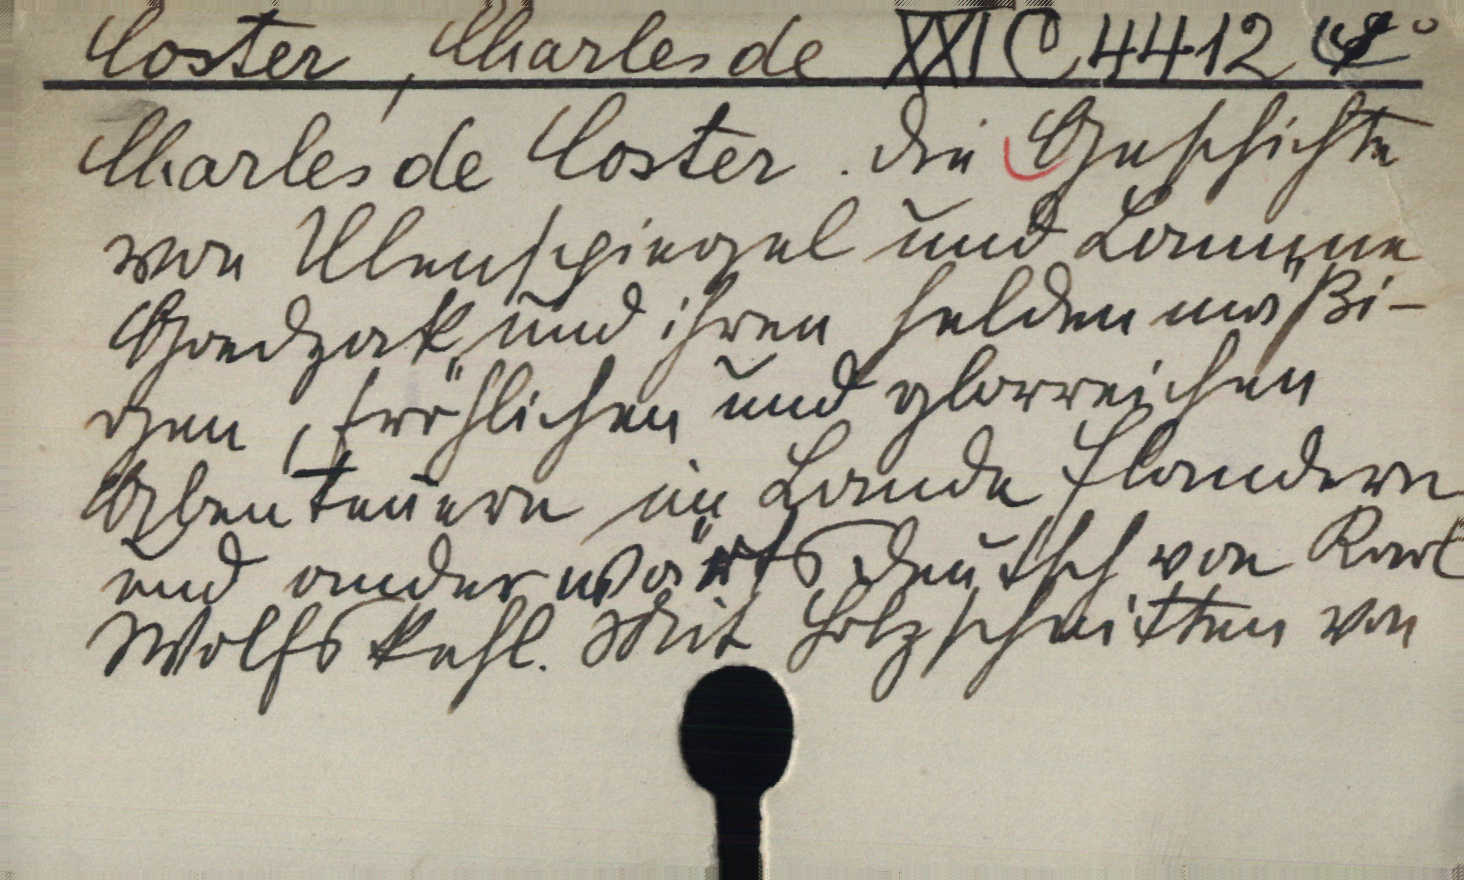 Coster, Charles de XXI C 4412
Charles de Coster. Die Geschichte
von Ulenspiegel und Lamme
Goedzak und ihren heldenmäßi-
gen, fröhlichen und glorreichen
Abenteuern im Lande Flandern
und anderwärts, Deutsch von Karl
Wolfskehl. Mit Holzschnitten von